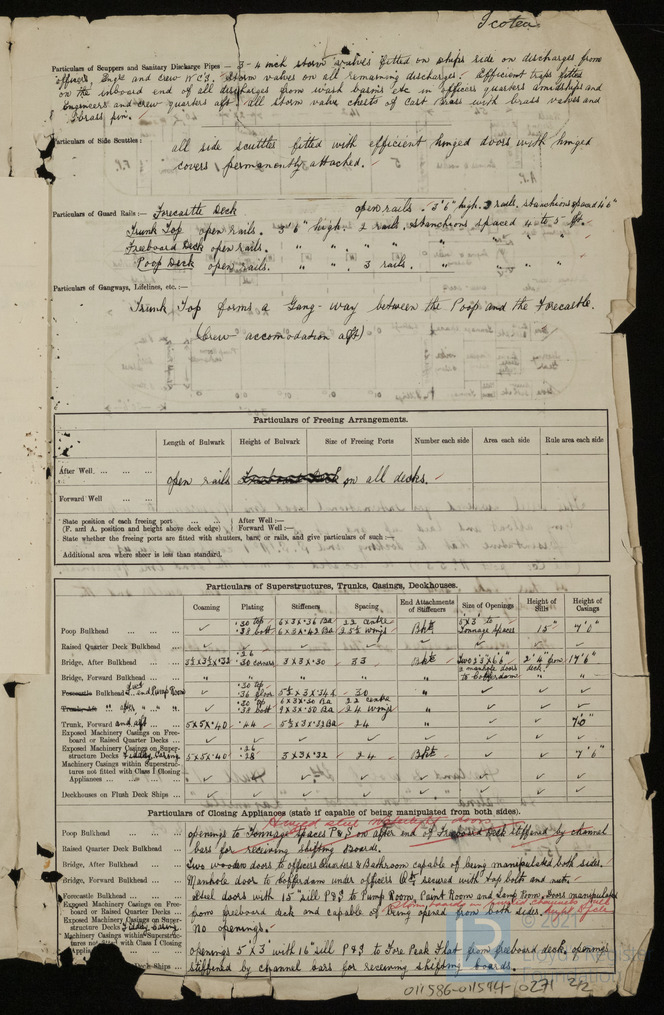 Scotea
Particulars of Scuppers and Sanitary Discharge Pipes — 3 - 4 inch storm valves fitted on ships side on discharges from
officers, Engrs and crew W.C's. Storm valves on all remaining discharges. Efficient traps fitted
on the inboard end of all discharges from wash basins etc in officers quarters amidships and
Engineers and crew quarters aft. all storm valve chests of cast brass with brass valves and
brass pin.
Particulars of Side Scuttles: all side scuttles fitted with efficient hinged doors with hinged
covers permanently attached.
Particulars of Guard Rails:— Forecastle Deck open rails. 3'6" high. 3 rails, stanchions spaced 4'6"
Trunk Top open rails. 3'6" high. 2 rails. Stanchions spaced 4 to 5 ft.
Freeboard Deck open rails. " " " " " "
Poop Deck open rails. " " 3 rails. " " "
Particulars of Gangways, Lifelines, etc.:—
Trunk Top forms a Gang-way between the Poop and the Forecastle.
(Crew accomodation aft)
Particulars of Freeing Arrangements.
Length of Bulwark Height of Bulwark Size of Freeing Ports Number each side Area each side Rule area each side
After Well
open rails on all decks.
Forward Well
State position of each freeing port After Well:—
(F. and A. position and height above deck edge) Forward Well:—
State whether the freeing ports are fitted with shutters, bars, or rails, and give particulars of such:—
Additional area where sheer is less than standard.
Particulars of Superstructures, Trunks, Casings, Deckhouses.
Coaming Plating Stiffeners Spacing End Attachments of Stiffeners Size of Openings Height of Sills Height of Casings
Poop Bulkhead ✓ .30 top .38 bott 6 x 3 x .36 BA 6 x 3 x .42 BA 22 centre 25½ wings Bkt 5' x 3' to Tonnage Spaces 15" 7'0"
Raised Quarter Deck Bulkhead
Bridge, After Bulkhead 5½x3½x.32 .26 .30 corners 3 x 3 x .30 33 Bkt Two 2'5"x6'6" 2'4" from deck 17'6"
Bridge, Forward Bulkhead " " " " " 2 manhole doors to Cofferdam " "
Forecastle Bulkhead Fwd end Pump Room .30 top .36 floor 5½ x 3 x .34 BA 30 "
" after " " .30 top .38 bott 6 x 3 x .30 BA 9 x 3 x .50 BA 22 centre 24 wings "
Trunk, Forward and aft 5 x 5 x .40 .44 5½ x 3 x .32 BA 24 " 7'0"
Exposed Machinery Casings on Freeboard or Raised Quarter Decks
Exposed Machinery Casings on Superstructure Decks Fiddley Casing 5x5x.40 .26 .28 3 x 3 x .32 24 Bkt 7'6"
Machinery Casings within Superstructures not fitted with Class I Closing Appliances
Deckhouses on Flush Deck Ships
Particulars of Closing Appliances (state if capable of being manipulated from both sides).
Poop Bulkhead openings to Tonnage Spaces P & S on after end of Freeboard Deck stiffened by channel
Raised Quarter Deck Bulkhead bars for receiving shifting boards.
Bridge, After Bulkhead Two wooden doors to officers Quarters & Bathroom capable of being manipulated both sides.
Bridge, Forward Bulkhead Manhole door to Cofferdam under officers Qts secured with tap bolts and nuts.
Forecastle Bulkhead Steel doors with 15" sill P & S to Pump Room, Paint Room and Lamp Room. Doors manipulated
Exposed Machinery Casings on Freeboard or Raised Quarter Decks from freeboard deck and capable of being opened from both sides.
Exposed Machinery Casings on Superstructure Decks Fiddley Casing No openings.
Machinery Casings within Superstructures not fitted with Class I Closing openings 5' x 3' with 16" sill P & S to Fore Peak Flat from freeboard deck, openings
Deck Ships stiffened by channel bars for receiving shifting boards.
Lloyd's Register
Foundation
011586-011594-0271 2/2